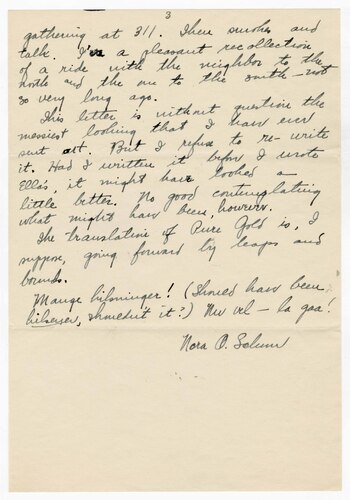 3
gathering at 311. Then smokes and
talk. I've a pleasant recollection
of a ride with the neighbor to the
north and the one to the south - not
so very long ago.
This letter is without question the
messiest looking that I have ever
sent out. But I refuse to re-write
it. Had I written it before I wrote
Ella's, it might have looked a
little better. No good contemplating
what might have been, however.
The translation of Pure Gold is, I
suppose, going forward by leaps and
bounds.
Mange hilsninger! (Should have been
hilsener, shouldn't it?) Nu vel - la gaa!
Nora O. Solum